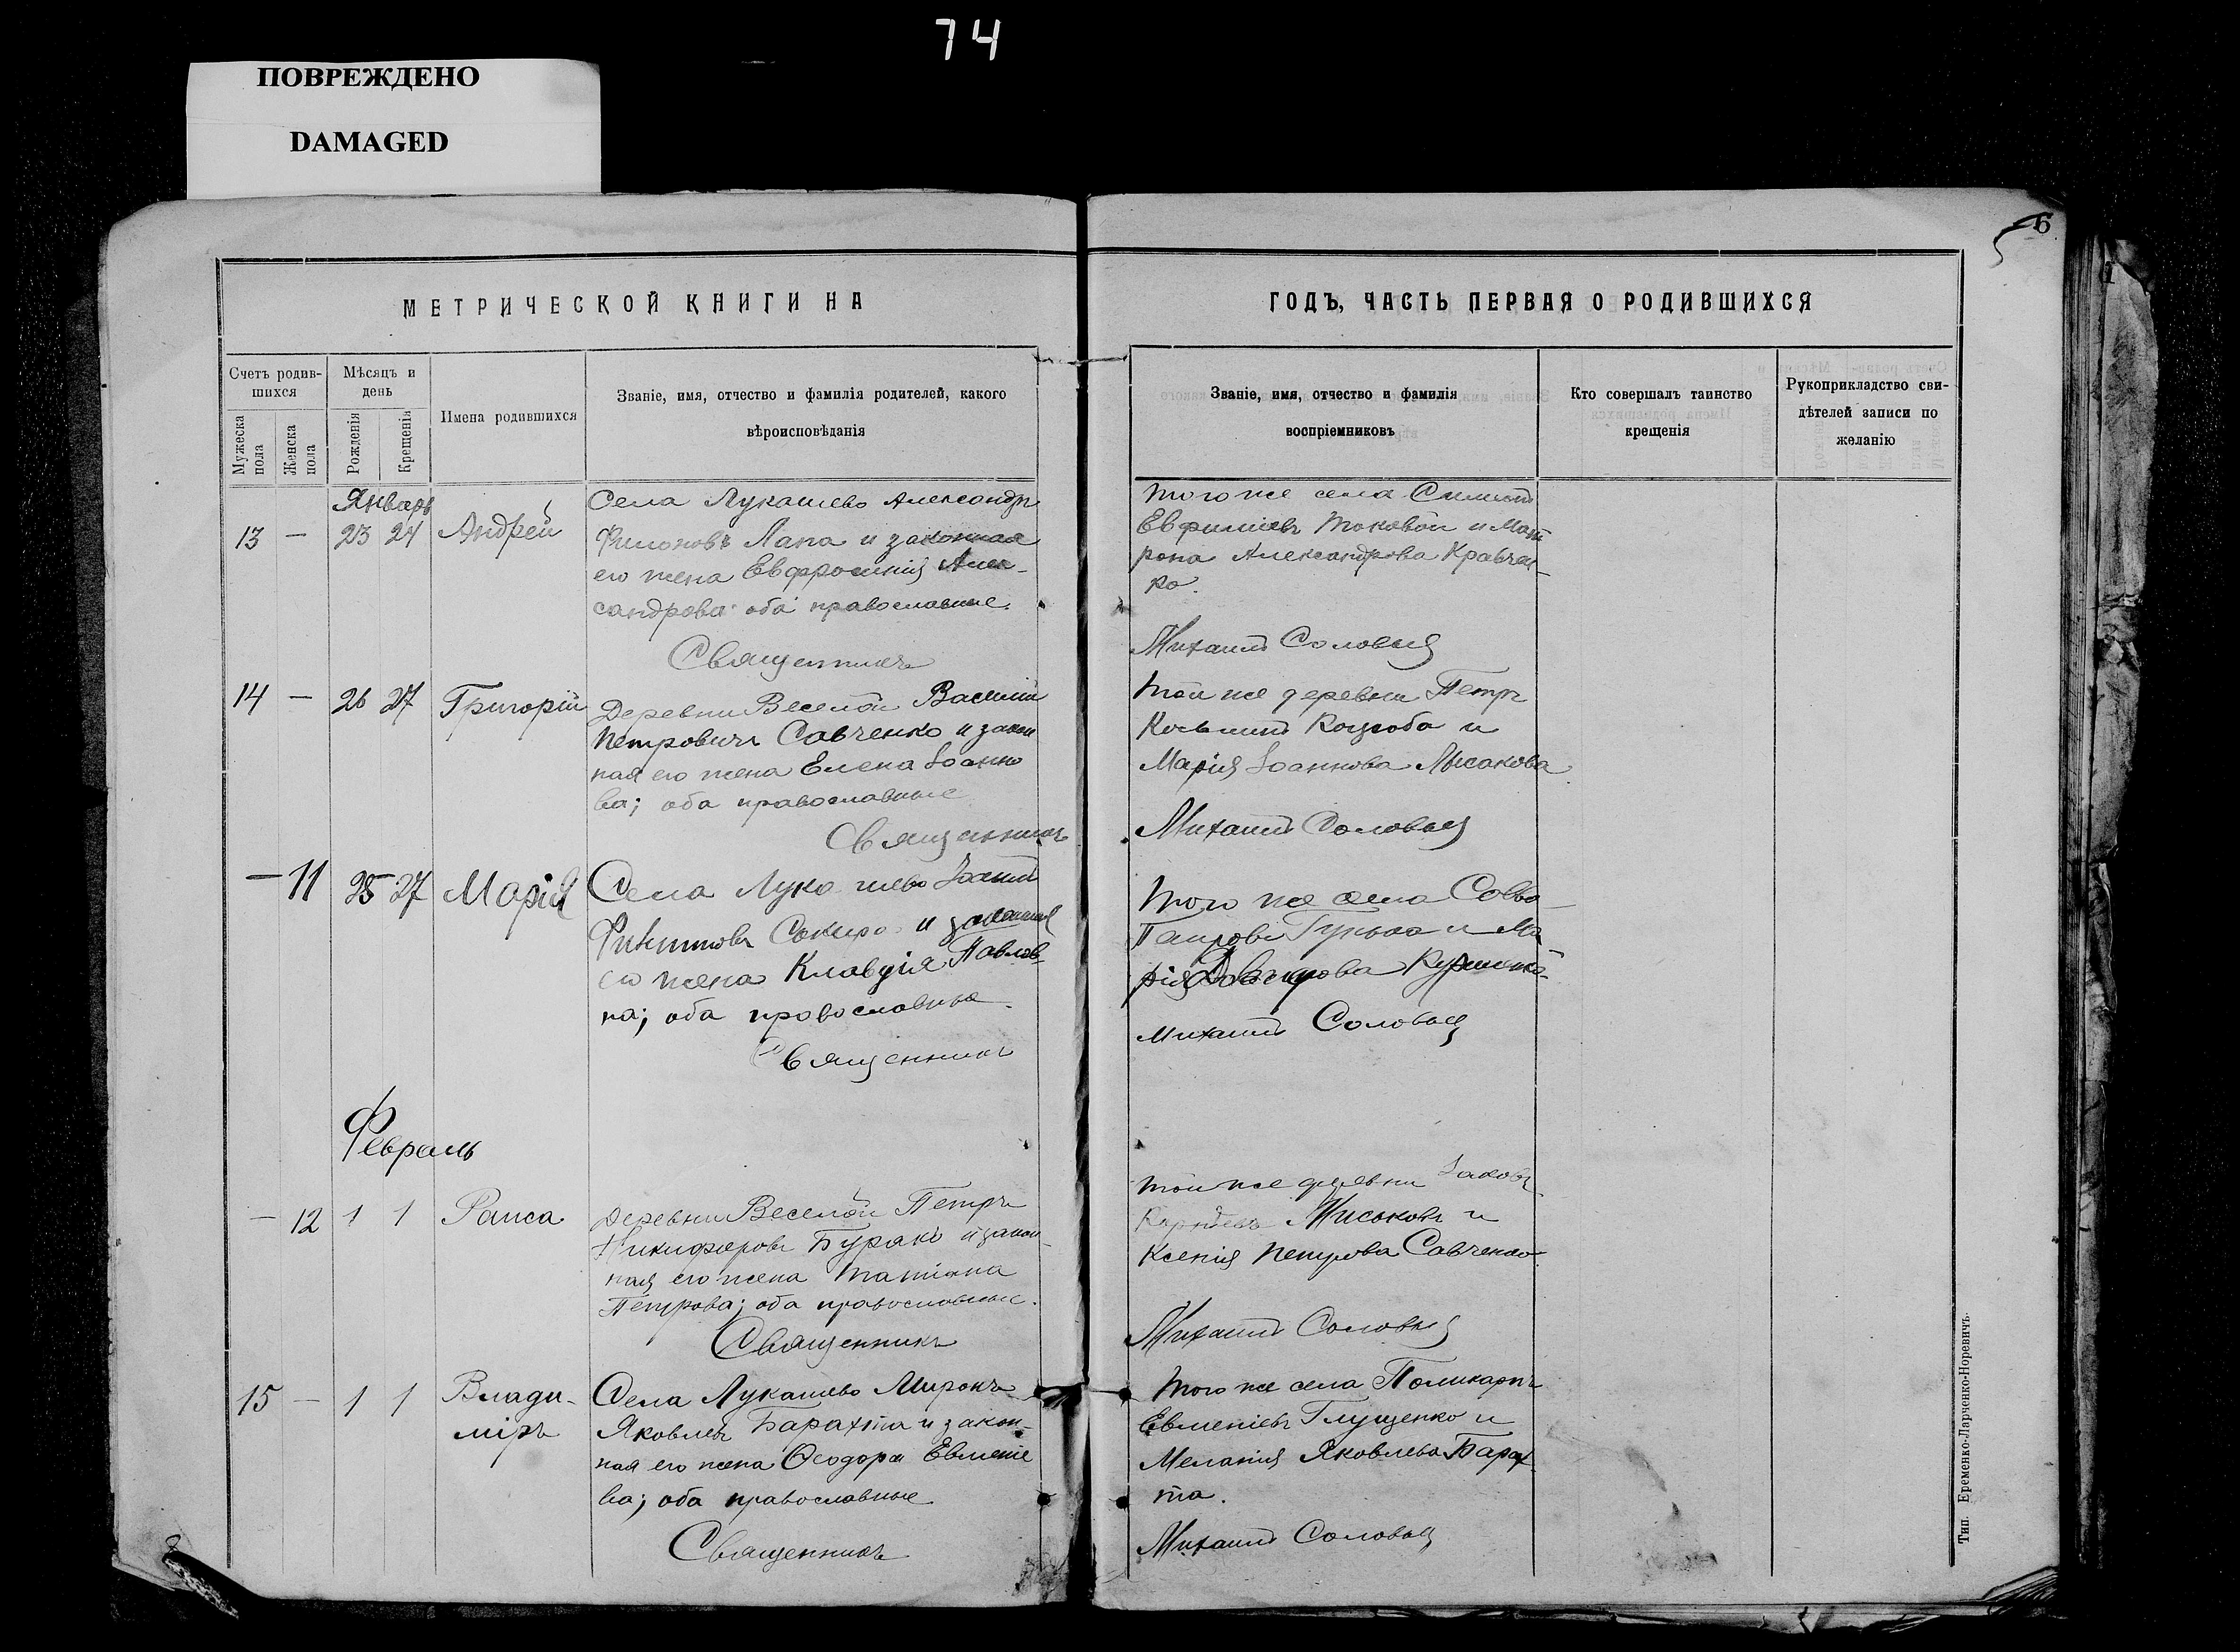 74
ПОВРЕЖДЕНО
DAMAGED
6
МЕТРИЧЕСКОЙ КНИГИ НА
ГОДЪ, ЧАСТЬ ПЕРВАЯ О РОДИВШИХСЯ
Счетъ родив-
шихся
Мужеска
пола
Женска
пола
Мѣсяцъ и
день
Рожденія
Крещенія
Имена родившихся
Званіе, имя, отчество и фамилія родителей, какого
вѣроисповѣданія
Званіе, имя, отчество и фамилія
воспріемниковъ
Кто совершалъ таинство
крещенія
Рукоприкладство сви-
дѣтелей записи по
желанію
Январь
13 — 23 24 Андрей
Села Лукашево Александръ
Филоновъ Лапа и законная
его жена Евфросинія Алек-
сандрова; оба православные.
Священникъ
того же села
Евфиміевъ Токовой и Мат
рона Александрова Кравчен-
ко.
Михаилъ Соловьев
14 — 26 27 Григорій
Деревни Веселой Василій
Петровичъ Савченко и закон
ная его жена Елена Іоанно
ва; оба православные
Священникъ
той же деревни Петръ
Косьминъ Коцюба и
Марія Іоаннова Лысакова
Михаилъ Соловьев
— 11 25 27 Марія
Села Лукашево Іоаннъ
Сокира и законная
его жена Клавдія Павлов-
на; оба православные.
Священникъ
того же села Савва
и Ма
рія
Михаилъ Соловьев
Февраль
— 12 1 1 Раиса
Деревни Веселой Петръ
Никифоровъ Буряко и закон-
ная его жена Татіана
Петрова; оба православные.
Священникъ
той же деревни Іаковъ
Миськовъ и
Ксенія Петрова Савченко.
Михаилъ Соловьев
15 — 1 1 Влади-
міръ
Села Лукашево Миронъ
Яковлевъ Барахта и закон-
ная его жена Ѳеодора Евменіе
ва; оба православные
Священникъ
того же села Поликарпъ
Евменіевъ Глущенко и
Меланія Яковлева Барах-
та.
Михаилъ Соловьев
Тип. Еременко-Ларченко-Норевичъ.